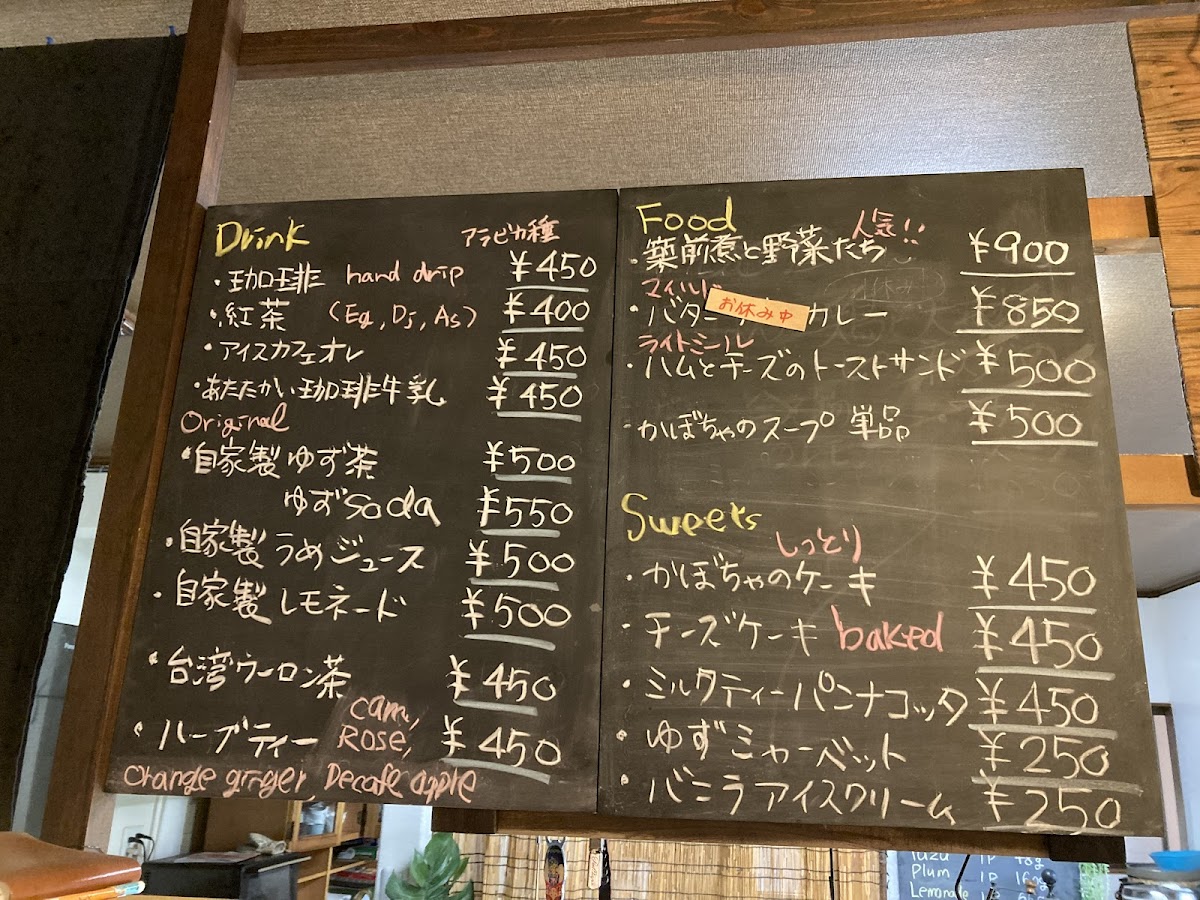 Drink アラビカ種
・珈琲 hand drip ¥450
・紅茶 (Eg, Dj, As) ¥400
・アイスカフェオレ ¥450
・あたたかい珈琲牛乳 ¥450
Original
・自家製ゆず茶 ¥500
ゆずsoda ¥550
・自家製うめジュース ¥500
・自家製レモネード ¥500
・台湾ウーロン茶 ¥450
cam,
・ハーブティー Rose, ¥450
Orange ginger, Decafe apple
Food 人気!!
・築前煮と野菜たち ¥900
マイルド
・バター お休み中 カレー ¥850
ライトミール
・ハムとチーズのトーストサンド ¥500
・かぼちゃのスープ 単品 ¥500
Sweets
しっとり
・かぼちゃのケーキ ¥450
・チーズケーキ baked ¥450
・ミルクティーパンナコッタ ¥450
・ゆずシャーベット ¥250
・バニラアイスクリーム ¥250
Yuzu 1P 48g
Plum 1P 162
Lemonade